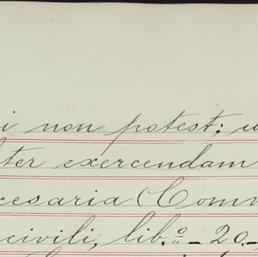 i non potest;
ter exercendam
cesaria Comm
civili, lib.º_20_